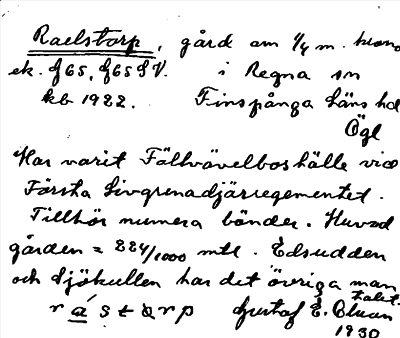 Raelstorp, gård om 1/4 m.
ek. f65, f65 SV. i Regna sn
kb 1922. Finspånga läns hd
Ögl
Har varit Fältvävelboställe vid
Första Livgrenadjärregementet.
Tillhör numera bönder. Huvud
gården = 224/1000 mtl. Edsudden
och Sjökullen har det övriga man
talet.
Gustaf E. Bluan
1930